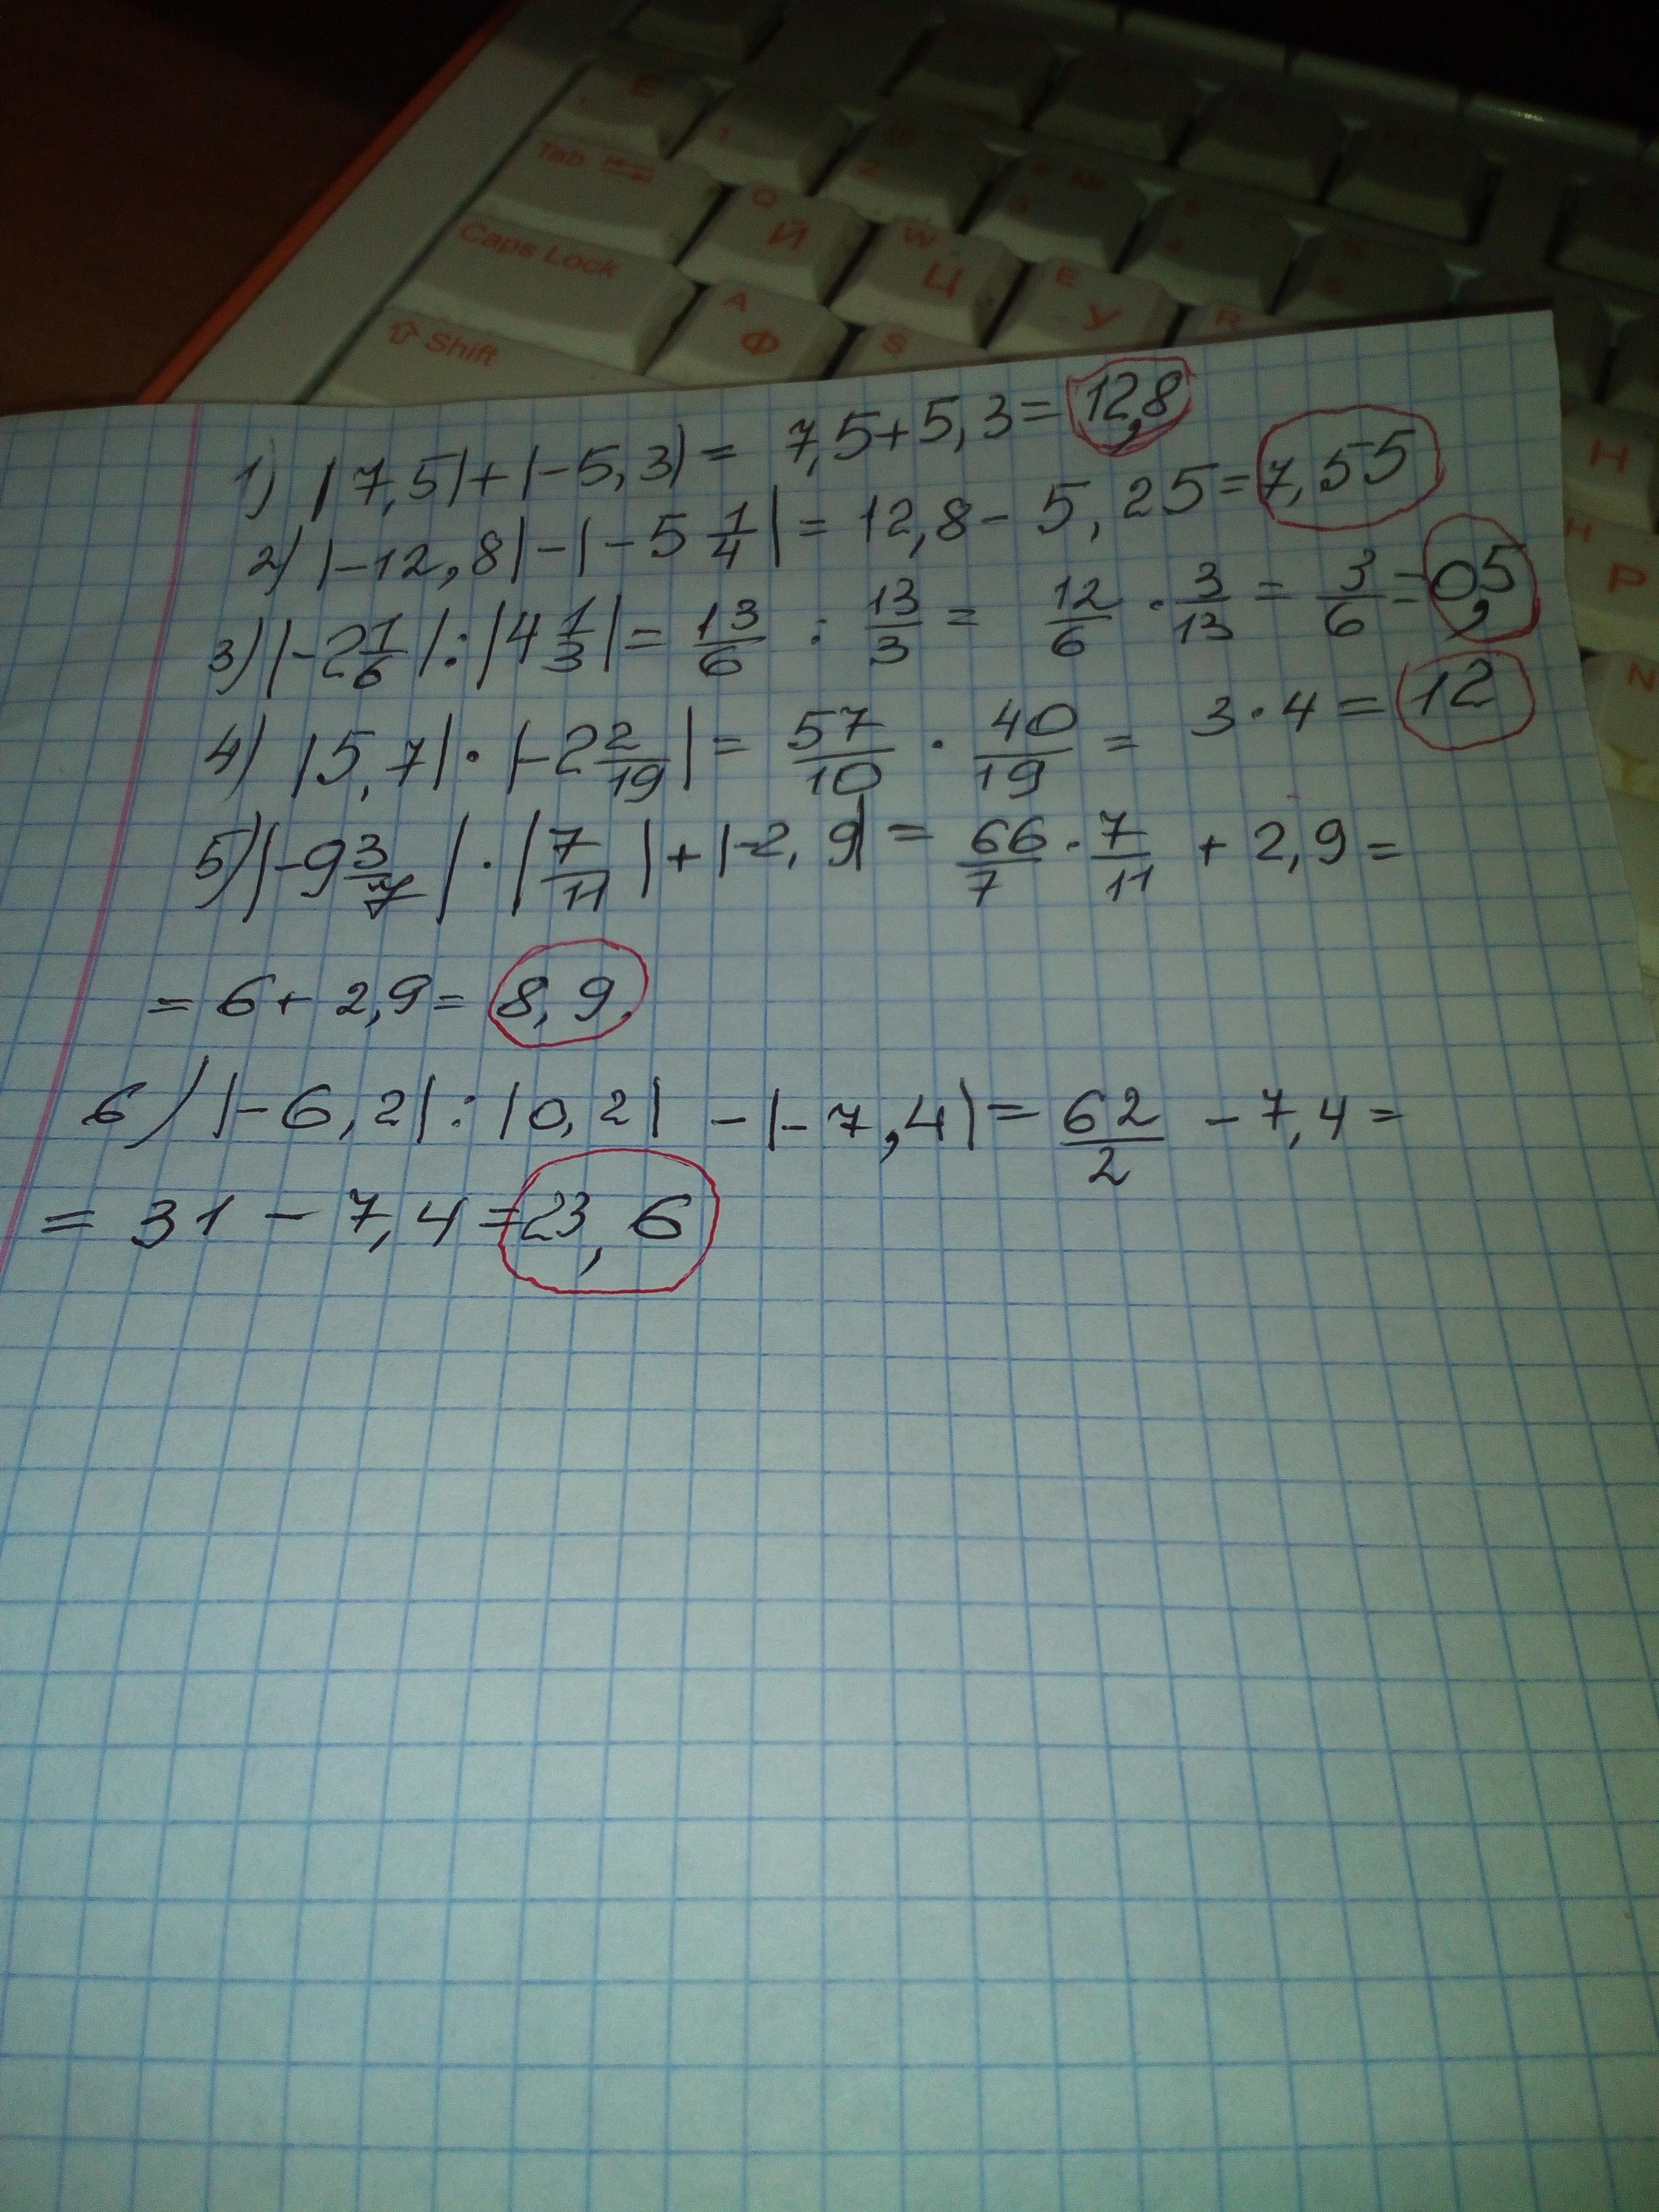 Tab
1
2
3
4
Q Й
W Ц
E У
R
Caps Lock
A Ф
S
Shift
H
H Р
N
1) |7,5|+|-5,3| = 7,5+5,3= 12,8
2) |-12,8|-|-5 1/4| = 12,8- 5,25=7,55
3) |-2 1/6|:|4 1/3|= 13/6 : 13/3 = 12/6 · 3/13 = 3/6 =0,5
4) |5,7|·|-2 2/19| = 57/10 · 40/19 = 3·4 = 12
5) |-9 3/7|·|7/11|+|-2,9| = 66/7 · 7/11 + 2,9 =
= 6+ 2,9= 8,9.
6) |-6,2|:|0,2| -|-7,4|= 62/2 -7,4=
= 31 - 7,4=23,6